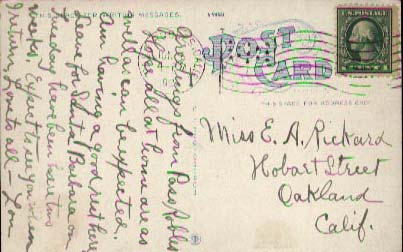 THIS SPACE FOR WRITING MESSAGES.
POST CARD
THIS SPACE FOR ADDRESS ONLY
Greetings from Paso Robles
Hope all at home are as
well as can be expected.
Am having a good rest here
leave for Santa Barbara on
Tuesday have been here two
weeks. Expect to see you when
I return. Love to all - Lou
Miss E. A. Rickard
Hobart Street
Oakland
Calif.